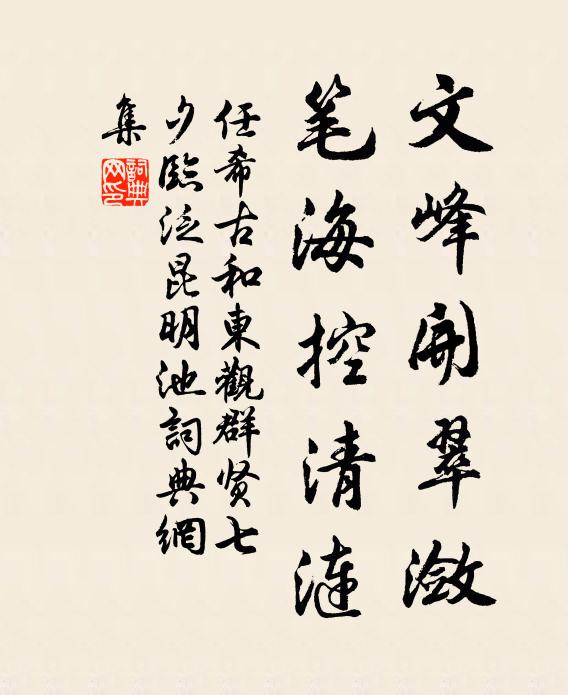 文峰開翠潋
笔海控清涟
任希古和東觀群贤七
夕臨泛昆明池詞典網
集
詞典網印